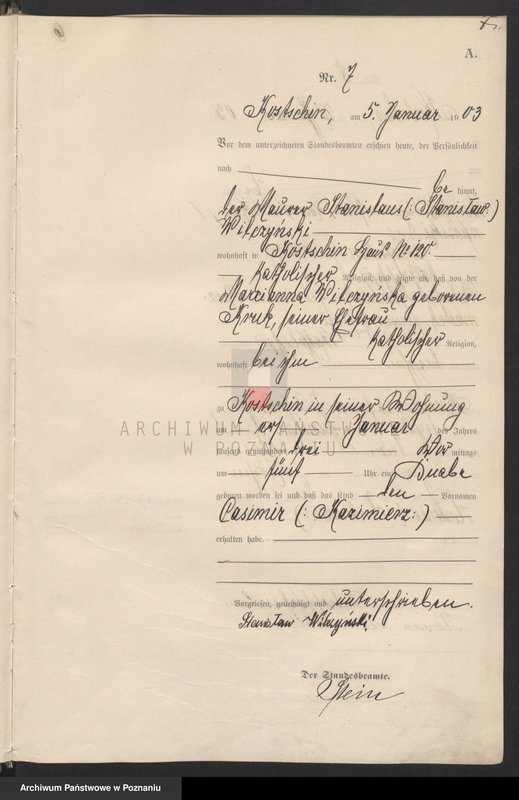 A.
Nr. 7
Kostschin, am 5. Januar 1903
Vor dem unterzeichneten Standesbeamten erschien heute, der Persönlichkeit
nach
be kannt,
der Maurer Stanislaus (: Stanisław :)
Wilczyński
wohnhaft in Kostschin Haus No 120.
katholischer Religion, und zeigte an, daß von der
Marianna Wilczyńska geborenen
Kruk, seiner Ehefrau
katholischer Religion,
wohnhaft bei ihm
zu Kostschin in seiner Wohnung
am Januar des Jahres
tausend neunhundert drei Vor mittags
um fünf Uhr ein Knabe
geboren worden sei und daß das Kind den Vornamen
Casimir (: Kazimierz :)
erhalten habe.
Vorgelesen, genehmigt und unterschrieben.
Stanisław Wilczyński
Der Standesbeamte.
Stein
ARCHIWUM PAŃSTWOWE
W POZNANIU
Archiwum Państwowe w Poznaniu